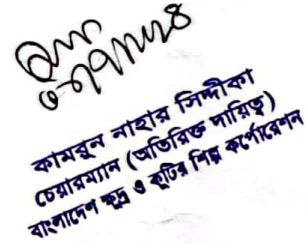 কামরুন নাহার সিদ্দীকা
চেয়ারম্যান (অতিরিক্ত দায়িত্ব)
বাংলাদেশ ক্ষুদ্র ও কুটির শিল্প কর্পোরেশন